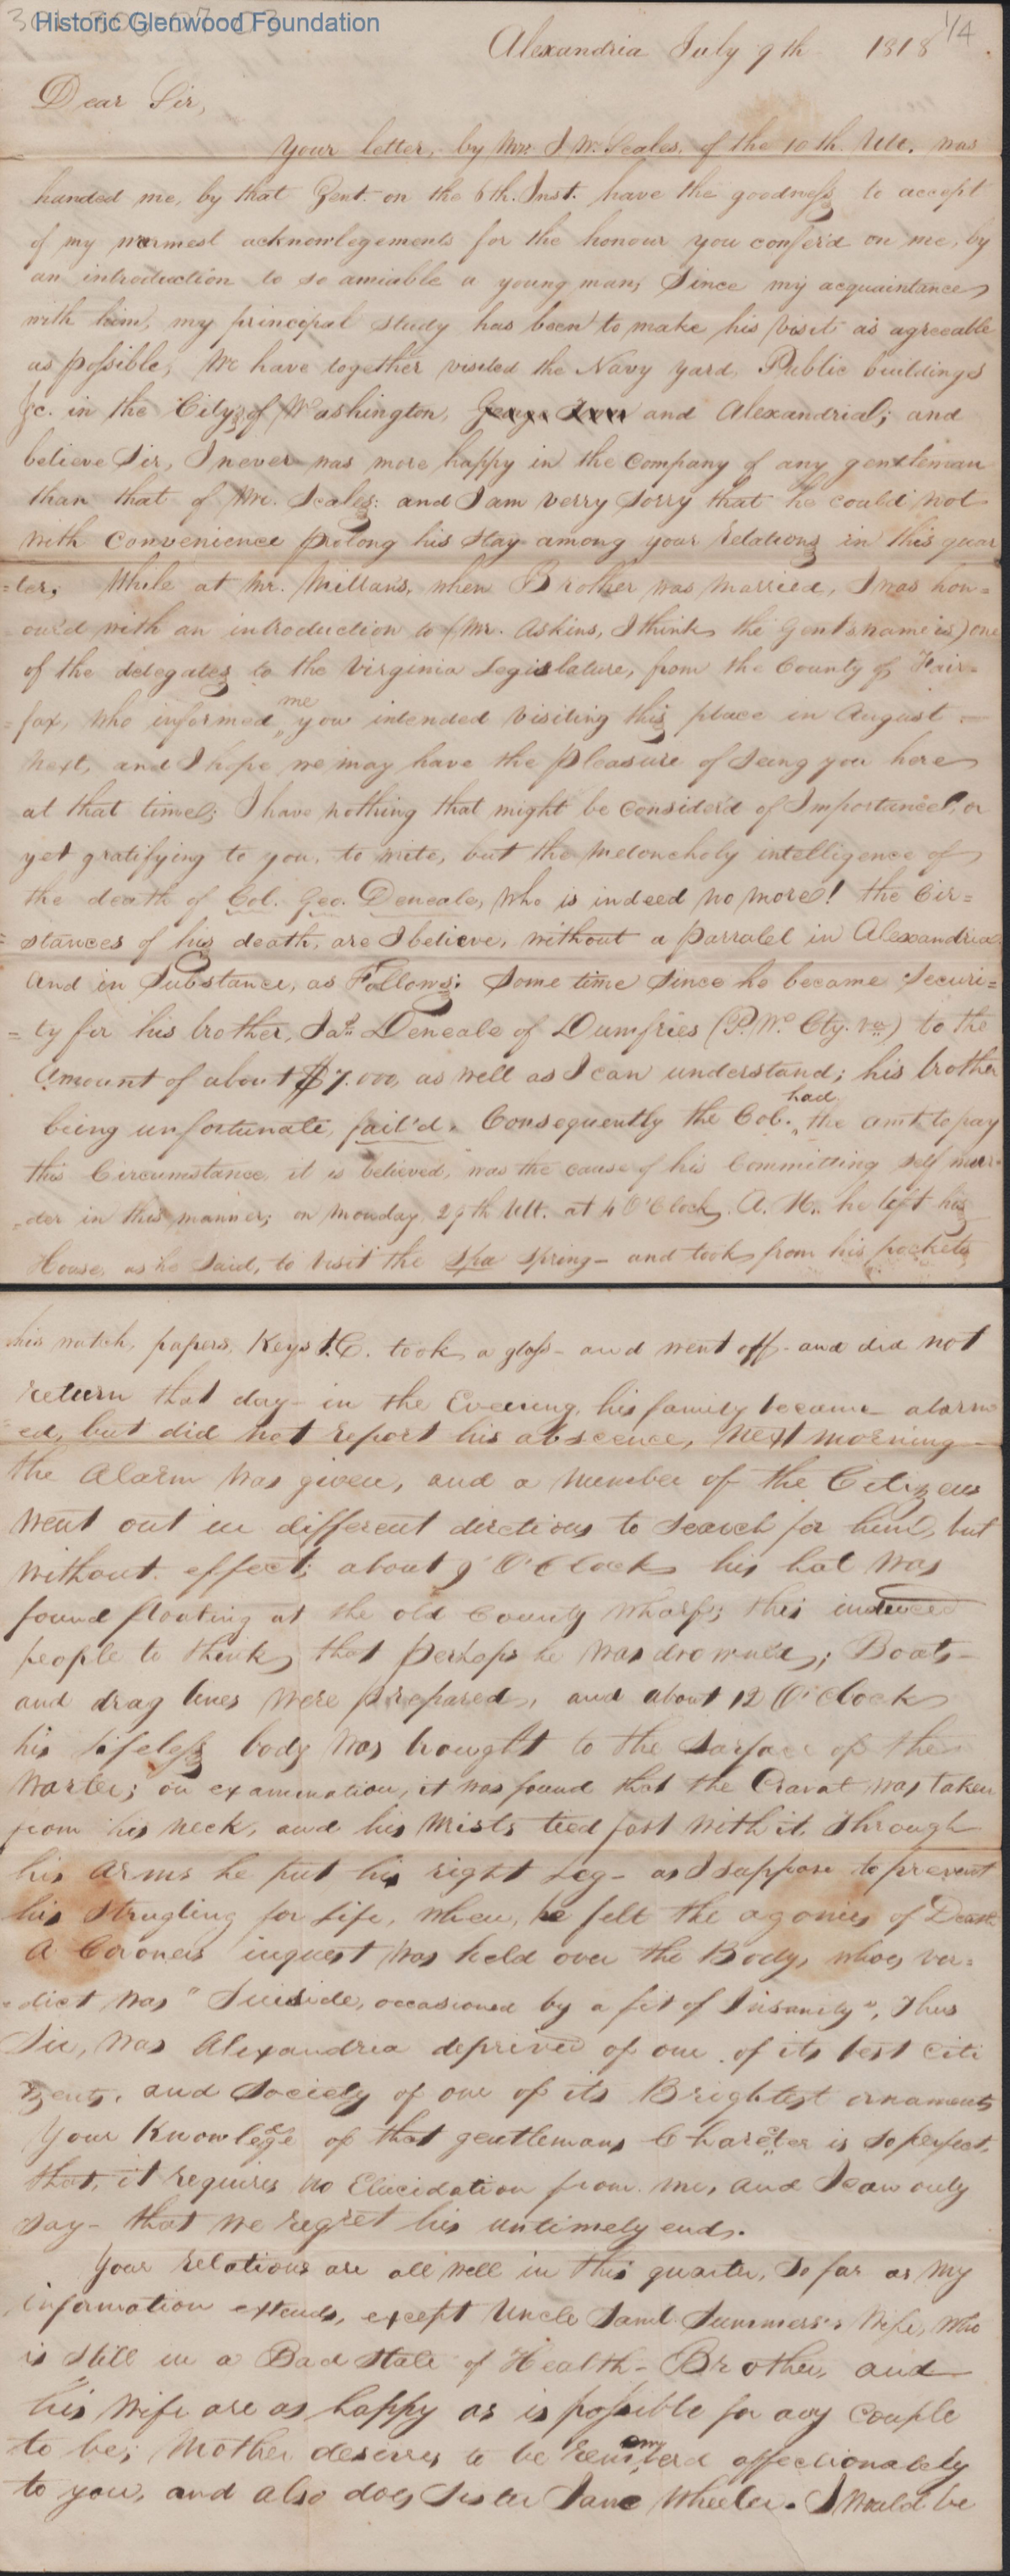 Historic Glenwood Foundation
1/4
Alexandria July 9th 1818
Dear Sir,
Your letter, by Mr. J W. Scales, of the 10th. Ult. was
handed me, by that Gent. on the 6th. Inst. have the goodness to accept
of my warmest acknowlegements for the honour you confer'd on me, by
an introduction to so amiable a young man; Since my acquaintance
with him, my principal study has been to make his visit as agreeable
as possible, We have together visited the Navy yard, Public buildings
&c. in the City of Washington, and Alexandria; and
believe Sir, I never was more happy in the Company of any gentleman
than that of Mr. Scales: and I am verry sorry that he could not
with convenience prolong his stay among your relations in this quar
=ter; While at Mr. Millans, when Brother was married, I was hon=
=our'd with an introduction to (Mr. Askins, I think the Gents name is) one
of the delegates to the Virginia Legislature, from the County of Fair=
=fax, who informed me you intended visiting this place in August
next, and I hope we may have the pleasure of Seeing you here
at that time; I have nothing that might be consider'd of Importance, or
yet gratifying to you, to write, but the meloncholy intelligence of
the death of Col. Geo. Deneale, who is indeed no more! the Cir=
=stances of his death, are I believe, without a parralel in Alexandria
and in Substance, as Follows: Some time since he became Securi=
=ty for his brother, Jas. Deneale of Dumfries (P. Wm. Cty. Va) to the
amount of about $7.000, as well as I can understand; his brother
being unfortunate, fail'd. Consequently the Col. had the amt. to pay
this Circumstance, it is believed, was the cause of his Committing self mur=
=der in this manner; on Monday 29th Ult. at 4 O'Clock. A. M. he left his
House, as he said, to visit the Spa Spring - and took from his pockets
his watch, papers, Keys &C. took a glass - and went off - and did not
return that day - in the Evening, his family became alarm
=ed, but did not report his abscence, next morning
the Alarm was given, and a number of the Citizens
went out in different dirctions to search for him, but
without effect; about 9 O'Clock his hat was
found floating at the old County wharf; this induced
people to think that perhaps he was drowned; Boats
and drag lines were prepared, and about 12 O'Clock
his lifeless body was brought to the Surface of the
Warter; on examination, it was found that the Cravat was taken
from his neck, and his wrists tied fast with it, through
his arms he put his right Leg - as I suppose to prevent
his strugling for life, when he felt the agonies of Death
A Coroners inquest was held over the Body, whoes ver=
=dict was "Suicide, occasioned by a fit of Insanity", Thus
Sir, was Alexandria deprived of one of its best citi
zens, and Society of one of its Brightest ornaments
Your Knowlege of that gentlemans Charecter is so perfect,
that, it requires no Elucidation from me, and I can only
say - that we regret his untimely end.
Your relations are all well in this quarter, so far as my
information extends, except Uncle Saml Summers's Wife, who
is still in a Bad state of Health - Brother, and
his Wife are as happy as is possible for any couple
to be; Mother desires to be remembered affectionately
to you, and also does Sister Jane Wheeler. I would be